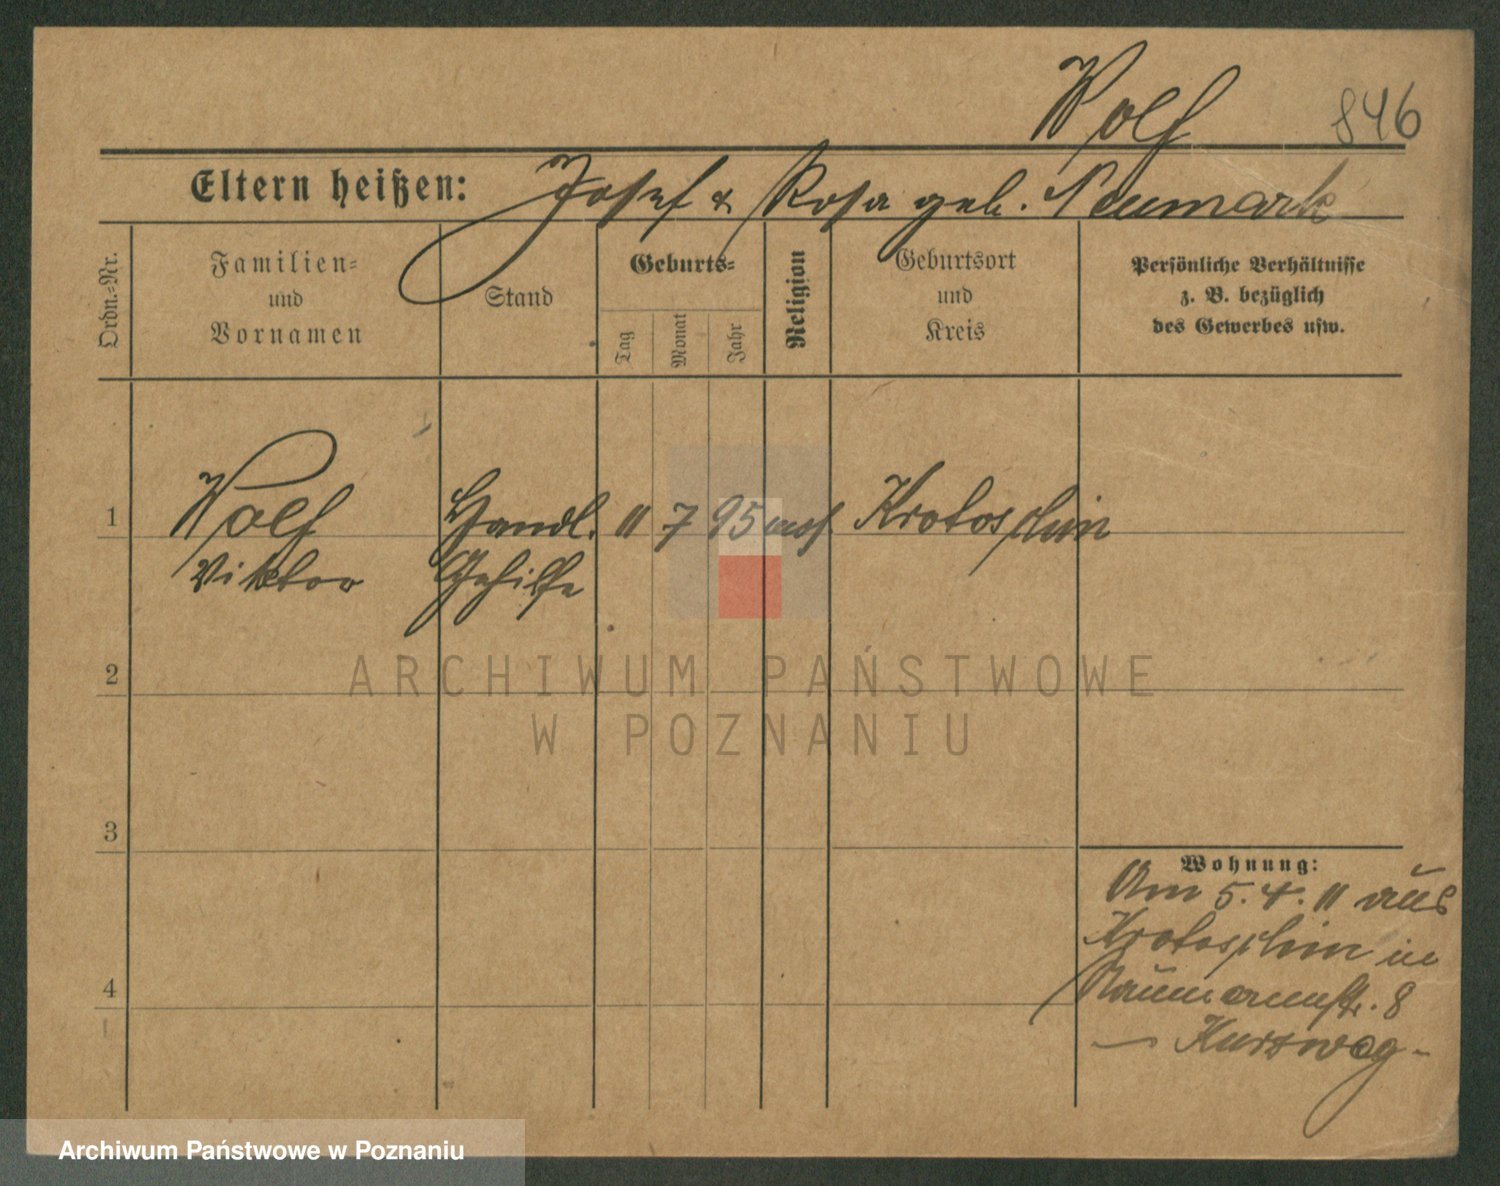 Wolf 846
Eltern heißen: Josef & Rosa geb. Neumark
Ordn.-Nr.
Familien-
und
Vornamen
Stand
Geburts-
Tag
Monat
Jahr
Religion
Geburtsort
und
Kreis
Persönliche Verhältnisse
z. B. bezüglich
des Gewerbes usw.
1 Wolf Handl. 11 7 95 mos. Krotoschin
Viktor Gehilfe
2
ARCHIWUM PAŃSTWOWE
W POZNANIU
3
Wohnung:
Am 5. 4. 11 aus
Krotoschin in
Naumannstr. 8
4
— Kurzweg -
Archiwum Państwowe w Poznaniu